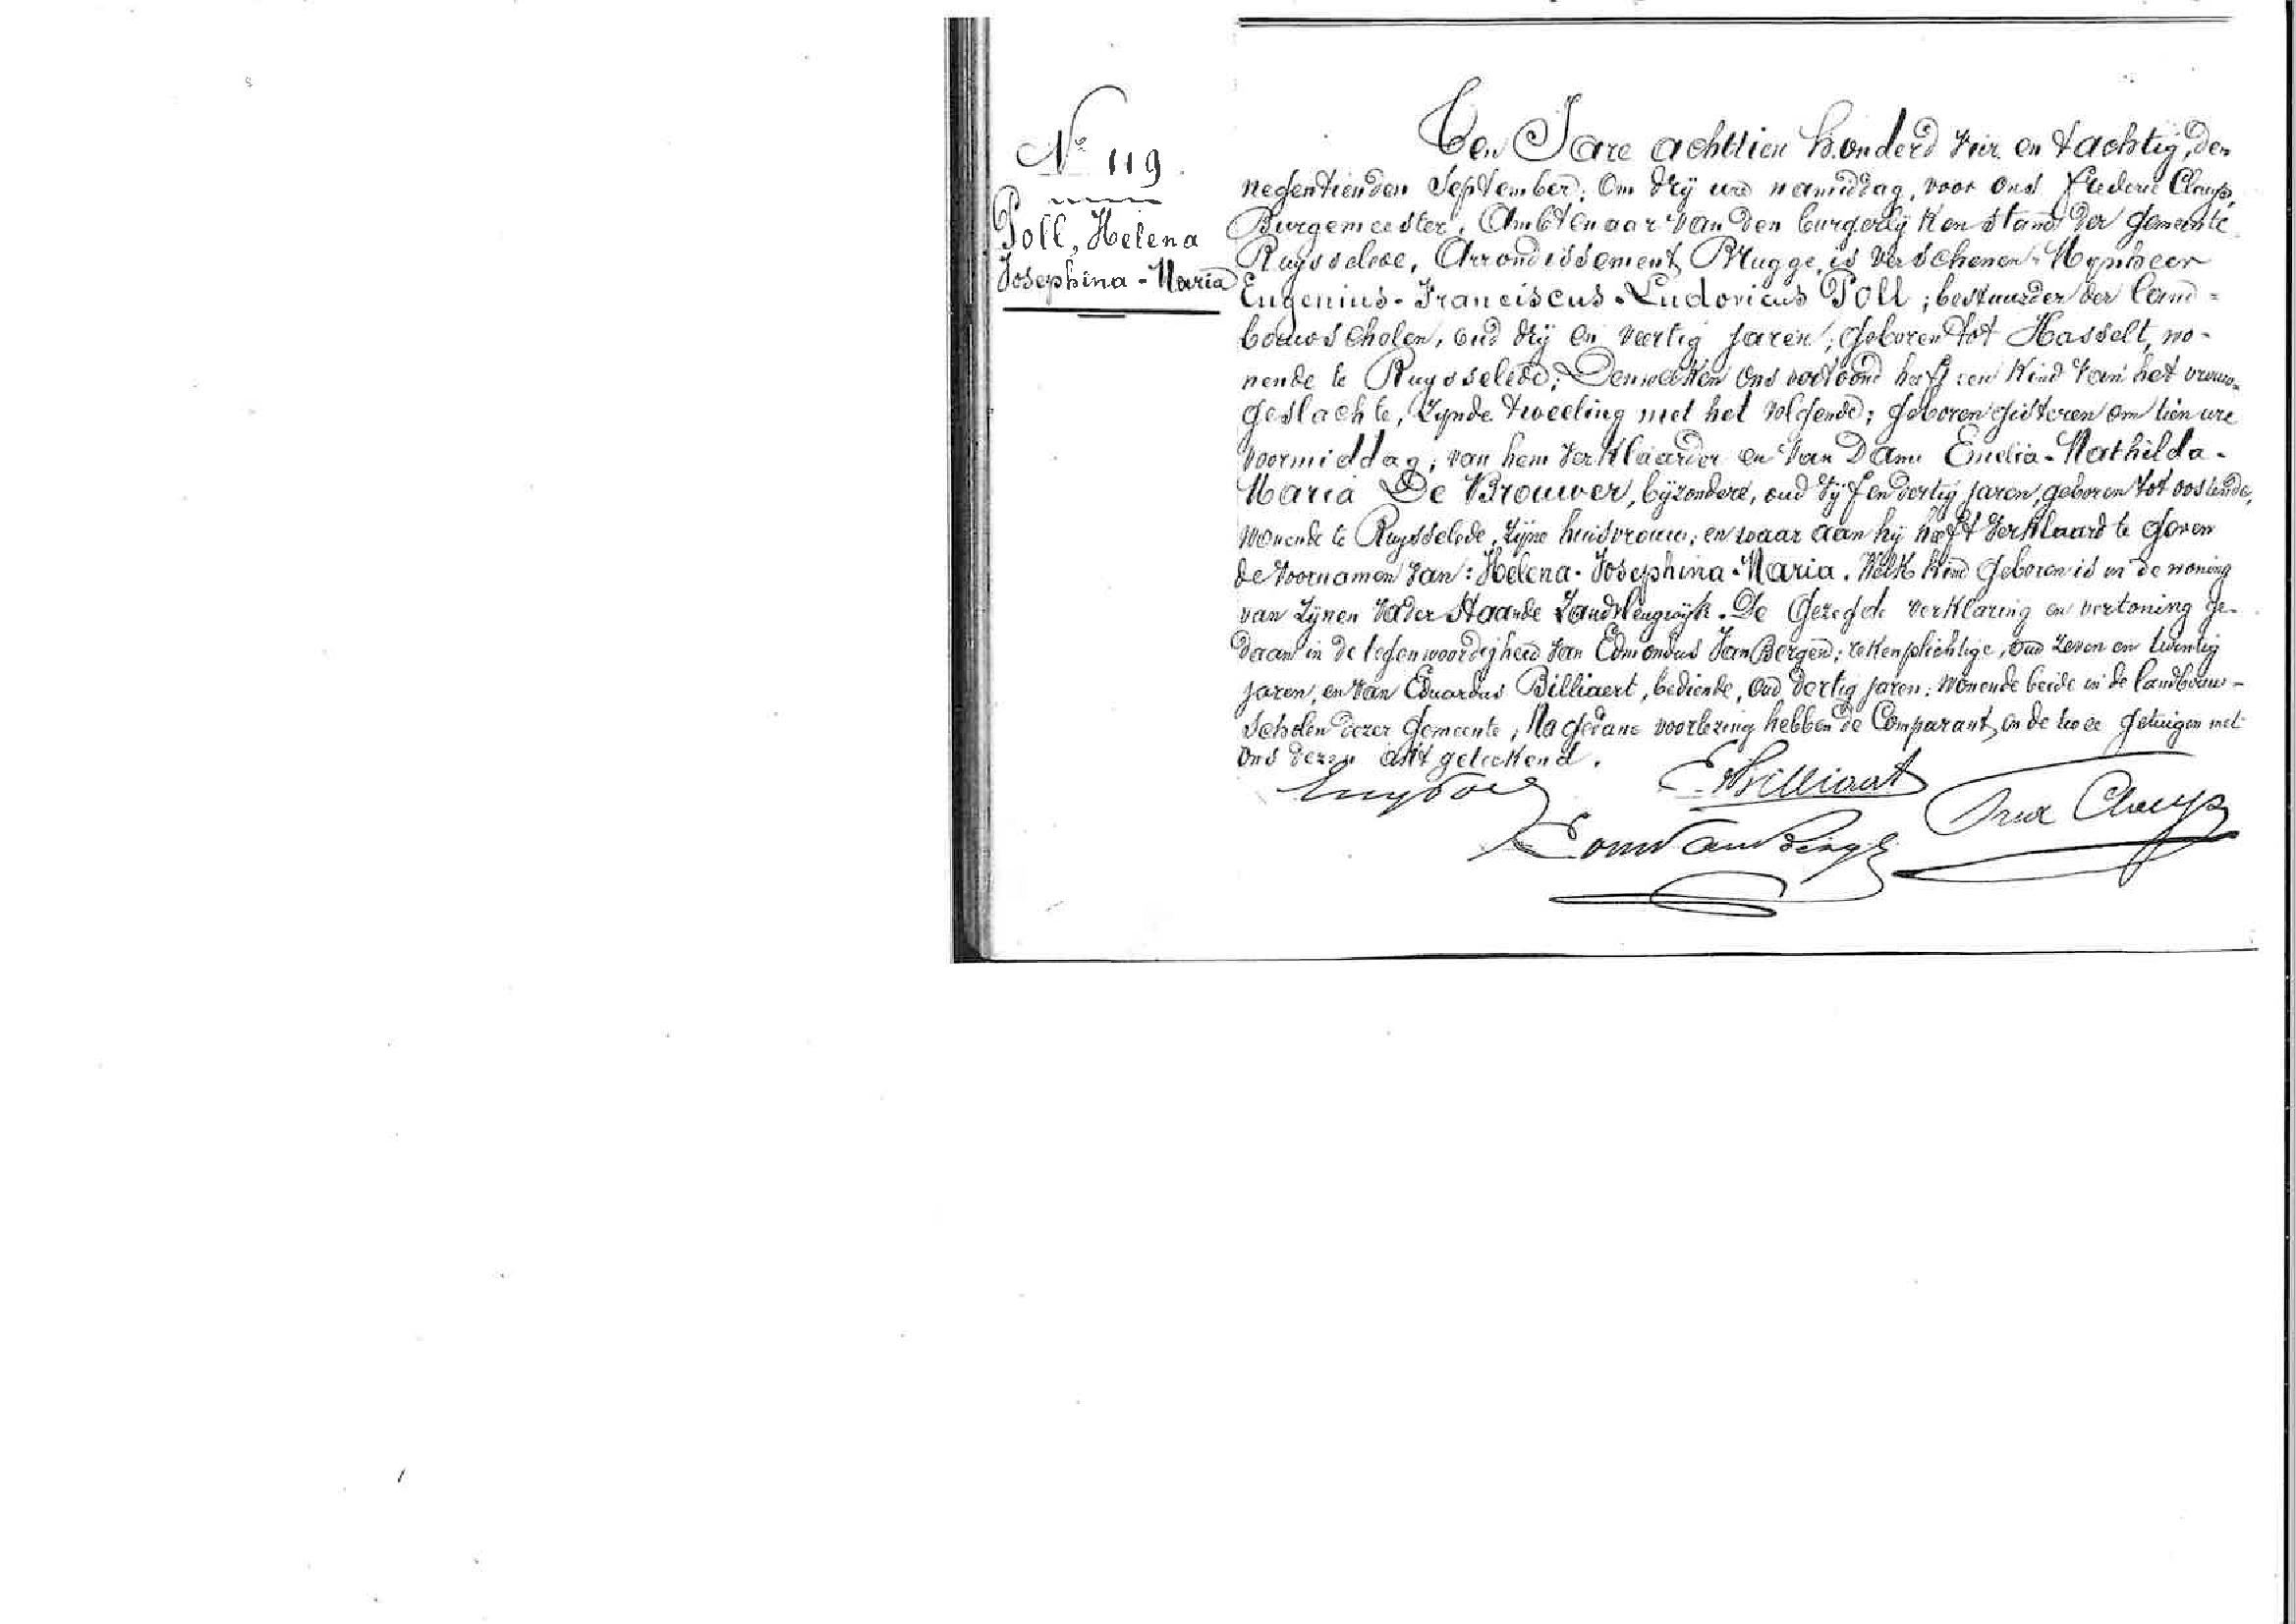 Nº 119.
Poll, Helena
Josephina-Maria
Ten Jare achttien honderd vier en tachtig, den
negentienden September, om dry ure namiddag, voor ons Frederic Claeys,
Burgemeester, Ambtenaar van den burgerlyken stand der gemeente
Ruysselede, Arrondissement Brugge, is verschenen Mynheer
Eugenius-Franciscus-Ludovicus Poll; bestuurder der land-
bouwscholen, oud dry en veertig jaren, geboren tot Hasselt, wo-
nende te Ruysselede; Denwelken ons vertoond heeft een kind van het vrouw-
geslachte, zynde tweeling met het volgende; geboren gisteren om tien ure
voormiddag, van hem verklaarder en van Dame Emelia-Mathilda-
Maria De Brouwer, byzondere, oud vyf en dertig jaren, geboren tot oostende,
wonende te Ruysselede, zyne huisvrouw; en waar aan hy heeft verklaard te geven
de voornamen van: Helena-Josephina-Maria. Welk kind geboren is in de woning
van zynen vader staande Zandbergwyk. De gezegde verklaring en vertoning ge-
daan in de tegenwoordigheid van Edmondus Van Bergen; rekenplichtige, oud zeven en twintig
jaren, en van Eduardus Billiaert, bediende, oud dertig jaren; wonende beide in de landbouw-
scholen dezer gemeente, Na gedane voorlezing hebben de Comparant en de twee getuigen met
ons dezen akt geteekend.
E. Billiaert
Fred Claeys